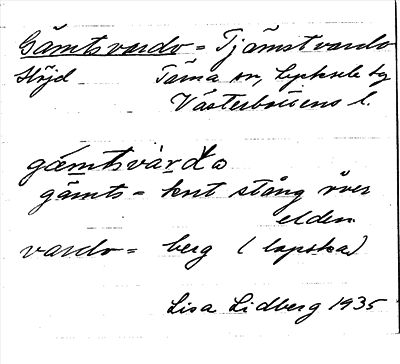 Gämtsvardo = Tjämstvardo
Höjd Tärna sn, Lycksele tg
Västerbottens l.
gä́mtsvàrdo
gämts = krut stång över
elden
vardo = berg (lapska)
Lisa Lidberg 1935